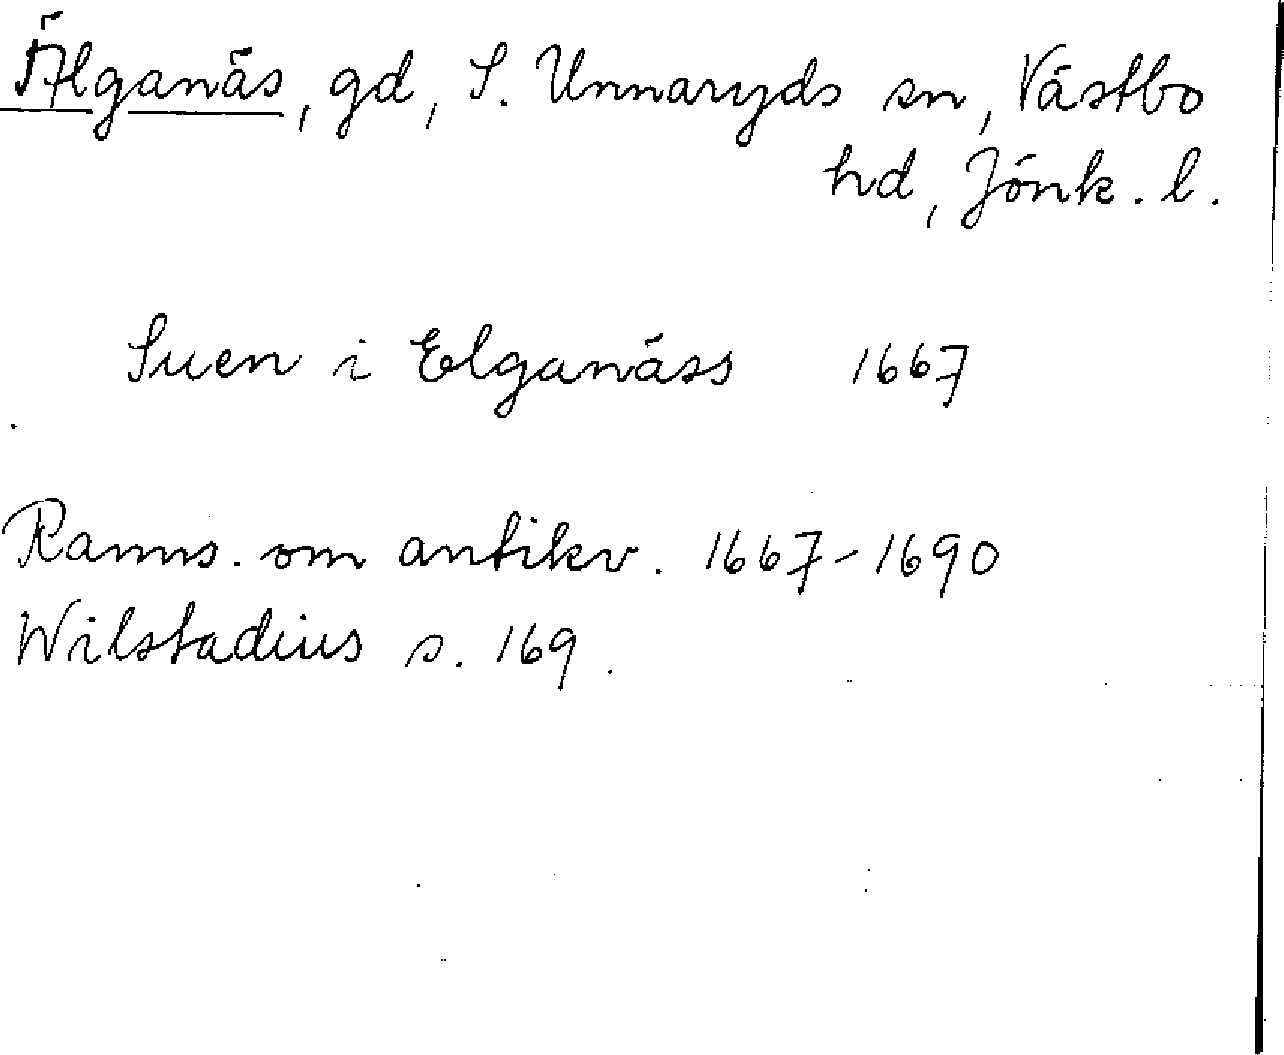 Älganäs, gd, S. Unnaryds sn, Västbo
hd, Jönk. l.
Suen i Elganäss 1667
Ranns. om antikv. 1667-1690
Wilstadius s. 169.